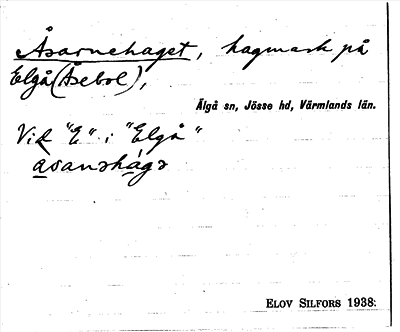 Åsarnehaget, hagmark på
Elgå (Åsebol),
Älgå sn, Jösse hd, Värmlands län.
Vid "E" i "Elgå"
åsanəhágə
ELOV SILFORS 1938.